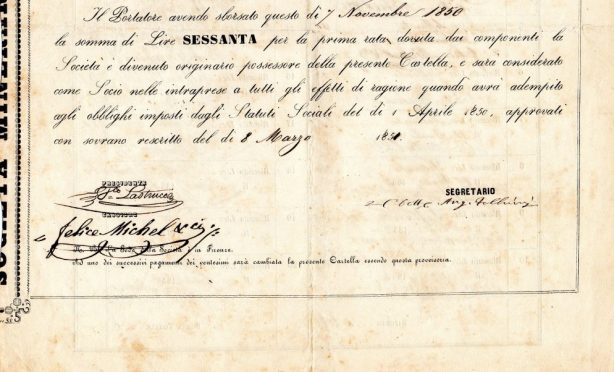 Il Portatore avendo sborsato questo dì 7 Novembre 1850
la somma di Lire SESSANTA per la prima rata dovuta dai componenti la
Società è divenuto originario possessore della presente Cartella, e sarà considerato
come Socio nelle intraprese a tutti gli effetti di ragione quando avrà adempito
agli obblighi imposti dagli Statuti Sociali del dì 1 Aprile 1850, approvati
con sovrano rescritto del dì 8 Marzo 1850.
PRESIDENTE
Lastrucci
SEGRETARIO
CASSIERE
Felice Michel
La Sede della Società è in Firenze.
Ad uno dei successivi pagamenti dei ventesimi sarà cambiata la presente Cartella essendo questa provvisoria.
SOCIETÀ MINERARIA